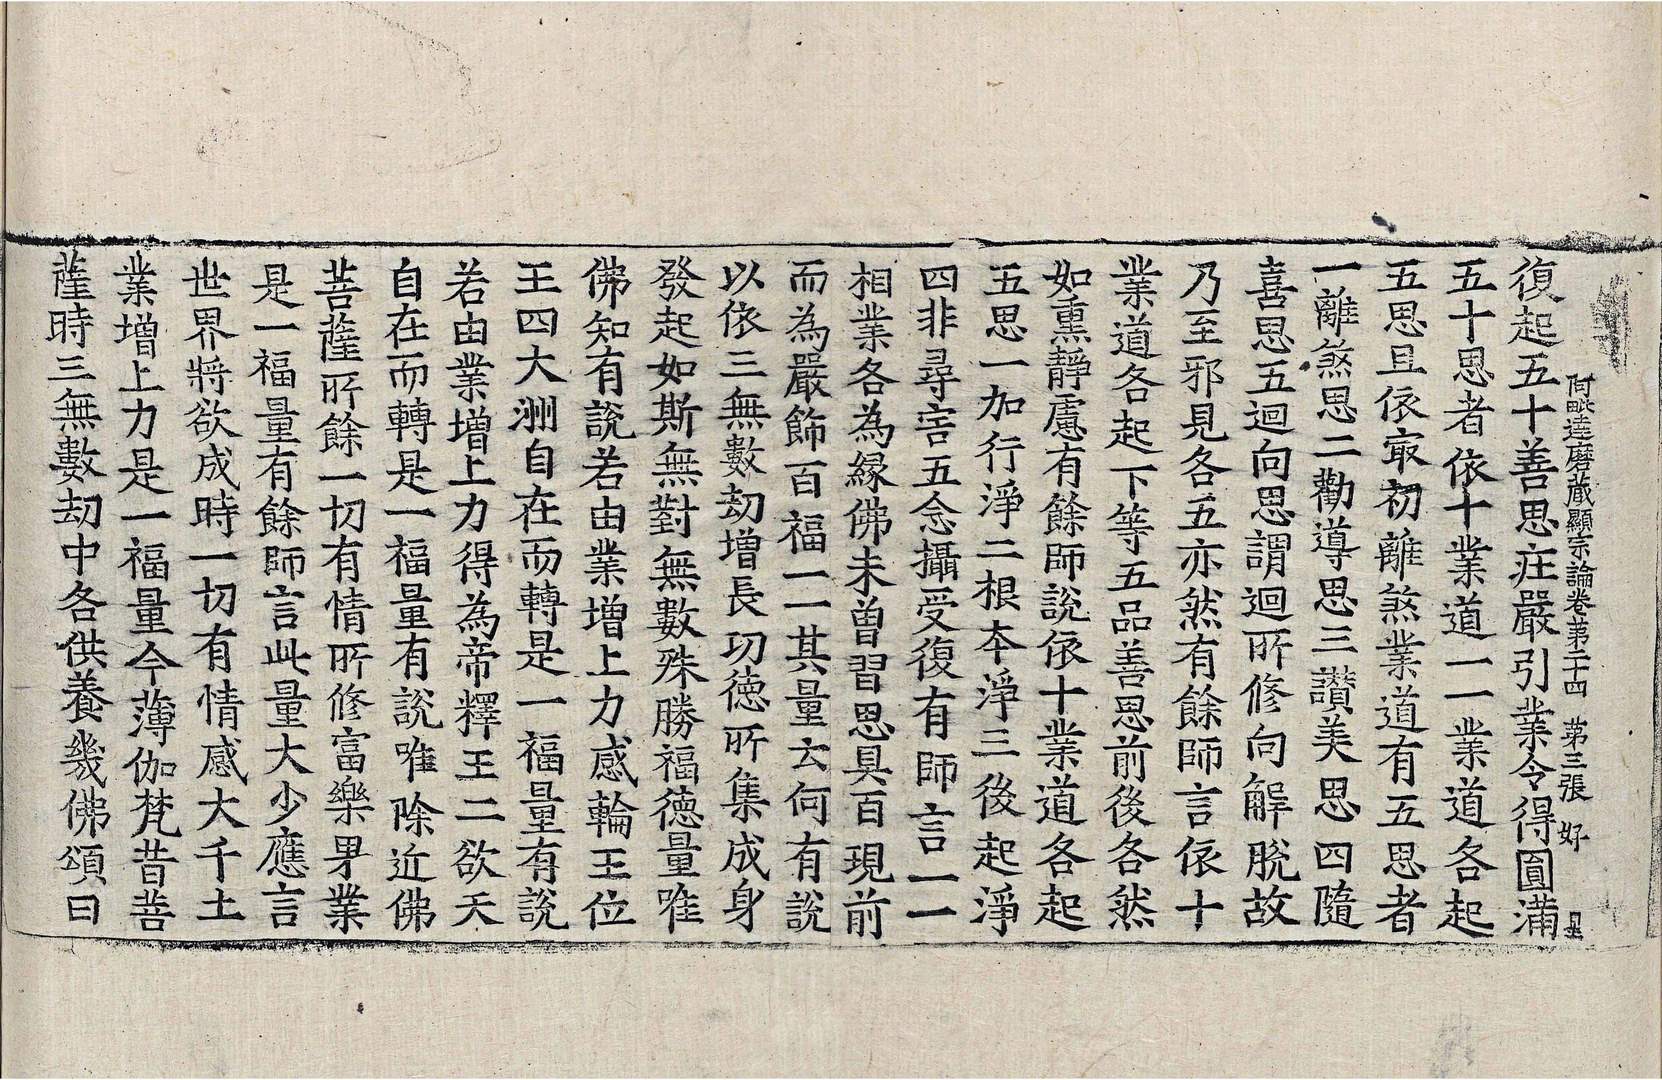 阿毗達磨蔵顯宗論卷苐二十四 苐三張 好
復起五十善思庄嚴引業令得圓滿
五十思者依十業道一一業道各起
五思且依㝡初離煞業道有五思者
一離煞思二勸導思三讃美思四隨
喜思五迴向思謂迴所修向解脫故
乃至邪見各五亦然有餘師言依十
業道各起下等五品善思前後各然
如熏靜慮有餘師說依十業道各起
五思一加行淨二根本淨三後起淨
四非尋害五念攝受復有師言一一
相業各為縁佛未曾習思具百現前
而為嚴飾百福一一其量云何有說
以依三無數劫增長功德所集成身
發起如斯無對無數殊勝福德量唯
佛知有說若由業增上力感輪王位
王四大洲自在而轉是一福量有說
若由業增上力得為帝釋王二欲天
自在而轉是一福量有說唯除近佛
菩薩所餘一切有情所修富樂果業
是一福量有餘師言此量大少應言
世界將欲成時一切有情感大千土
業增上力是一福量今薄伽梵昔菩
薩時三無數劫中各供養幾佛頌曰